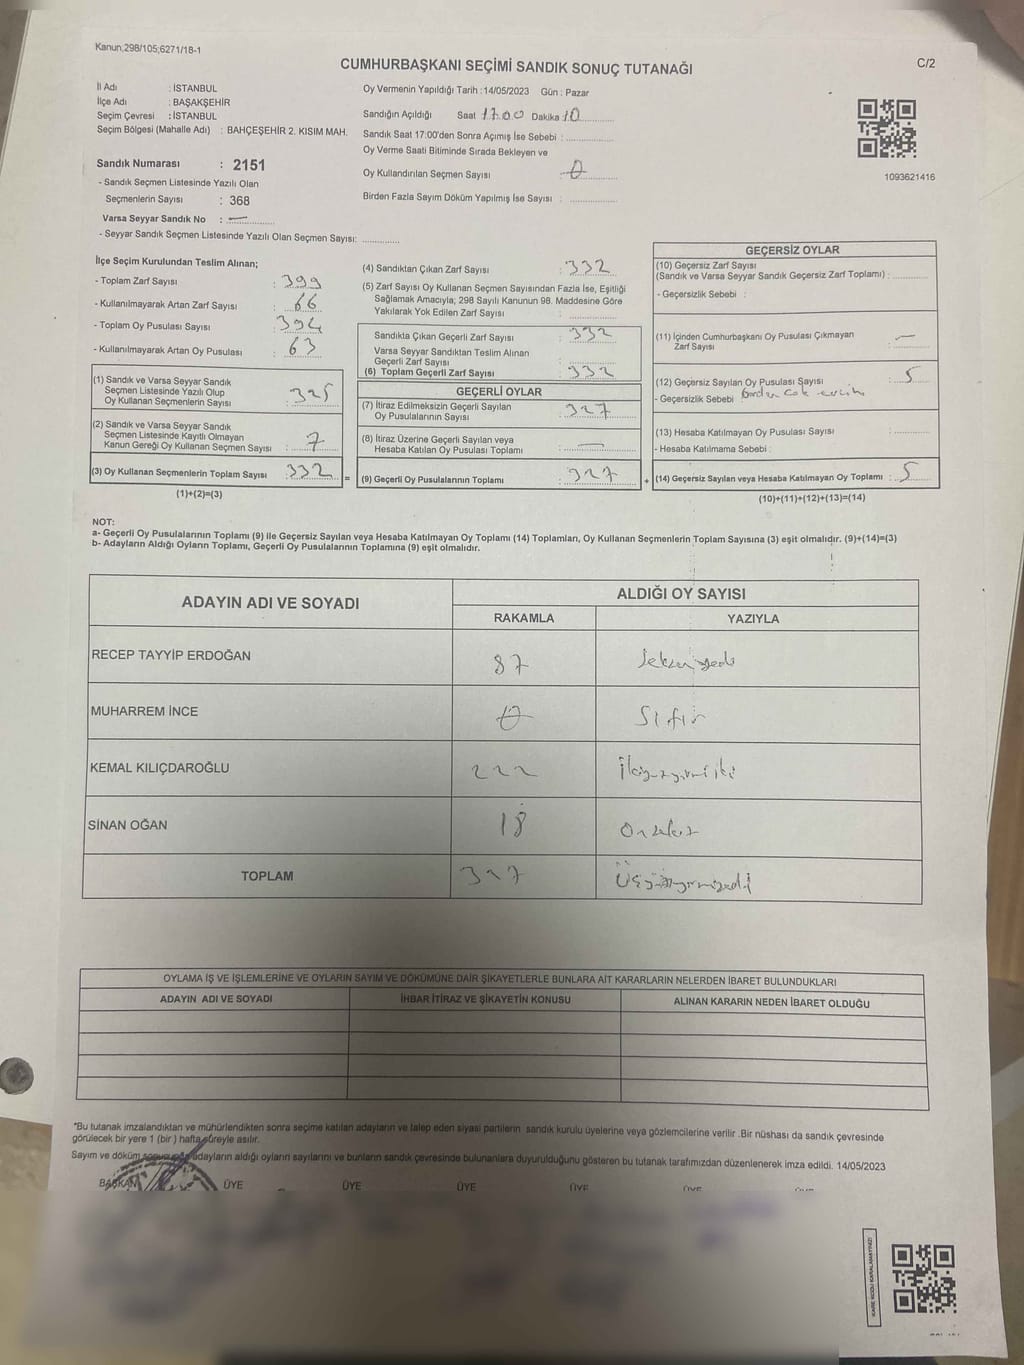 Kanun;298/105;6271/18-1
CUMHURBAŞKANI SEÇİMİ SANDIK SONUÇ TUTANAĞI
C/2
İl Adı : İSTANBUL
İlçe Adı : BAŞAKŞEHİR
Seçim Çevresi : İSTANBUL
Seçim Bölgesi (Mahalle Adı) : BAHÇEŞEHİR 2. KISIM MAH.
Sandık Numarası : 2151
- Sandık Seçmen Listesinde Yazılı Olan
Seçmenlerin Sayısı : 368
Varsa Seyyar Sandık No : —
- Seyyar Sandık Seçmen Listesinde Yazılı Olan Seçmen Sayısı: ..............
Oy Vermenin Yapıldığı Tarih : 14/05/2023 Gün : Pazar
Sandığın Açıldığı Saat 17.00 Dakika 10
Sandık Saat 17:00'den Sonra Açımış İse Sebebi : ..............
Oy Verme Saati Bitiminde Sırada Bekleyen ve
Oy Kullandırılan Seçmen Sayısı : 0
Birden Fazla Sayım Döküm Yapılmış İse Sayısı : ..............
1093621416
İlçe Seçim Kurulundan Teslim Alınan;
- Toplam Zarf Sayısı : 399
- Kullanılmayarak Artan Zarf Sayısı : 66
- Toplam Oy Pusulası Sayısı : 394
- Kullanılmayarak Artan Oy Pusulası : 63
(1) Sandık ve Varsa Seyyar Sandık
Seçmen Listesinde Yazılı Olup
Oy Kullanan Seçmenlerin Sayısı : 325
(2) Sandık ve Varsa Seyyar Sandık
Seçmen Listesinde Kayıtlı Olmayan
Kanun Gereği Oy Kullanan Seçmen Sayısı : 7
(3) Oy Kullanan Seçmenlerin Toplam Sayısı : 332 =
(1)+(2)=(3)
(4) Sandıktan Çıkan Zarf Sayısı : 332
(5) Zarf Sayısı Oy Kullanan Seçmen Sayısından Fazla İse, Eşitliği
Sağlamak Amacıyla; 298 Sayılı Kanunun 98. Maddesine Göre
Yakılarak Yok Edilen Zarf Sayısı : ..............
Sandıkta Çıkan Geçerli Zarf Sayısı : 332
Varsa Seyyar Sandıktan Teslim Alınan
Geçerli Zarf Sayısı : ..............
(6) Toplam Geçerli Zarf Sayısı : 332
GEÇERLİ OYLAR
(7) İtiraz Edilmeksizin Geçerli Sayılan
Oy Pusulalarının Sayısı : 327
(8) İtiraz Üzerine Geçerli Sayılan veya
Hesaba Katılan Oy Pusulası Toplamı : —
(9) Geçerli Oy Pusulalarının Toplamı : 327 +
GEÇERSİZ OYLAR
(10) Geçersiz Zarf Sayısı
(Sandık ve Varsa Seyyar Sandık Geçersiz Zarf Toplamı) : ..............
- Geçersizlik Sebebi :
(11) İçinden Cumhurbaşkanı Oy Pusulası Çıkmayan
Zarf Sayısı : —
(12) Geçersiz Sayılan Oy Pusulası Sayısı : 5
- Geçersizlik Sebebi Birden çok
(13) Hesaba Katılmayan Oy Pusulası Sayısı : ..............
- Hesaba Katılmama Sebebi :
(14) Geçersiz Sayılan veya Hesaba Katılmayan Oy Toplamı : 5
(10)+(11)+(12)+(13)=(14)
NOT:
a- Geçerli Oy Pusulalarının Toplamı (9) ile Geçersiz Sayılan veya Hesaba Katılmayan Oy Toplamı (14) Toplamları, Oy Kullanan Seçmenlerin Toplam Sayısına (3) eşit olmalıdır. (9)+(14)=(3)
b- Adayların Aldığı Oyların Toplamı, Geçerli Oy Pusulalarının Toplamına (9) eşit olmalıdır.
ADAYIN ADI VE SOYADI ALDIĞI OY SAYISI
RAKAMLA YAZIYLA
RECEP TAYYİP ERDOĞAN 87 Seksenyedi
MUHARREM İNCE 0 Sıfır
KEMAL KILIÇDAROĞLU 222 İkiyüzyirmiiki
SİNAN OĞAN 18 Onsekiz
TOPLAM 327 Üçyüzyirmiyedi
OYLAMA İŞ VE İŞLEMLERİNE VE OYLARIN SAYIM VE DÖKÜMÜNE DAİR ŞİKAYETLERLE BUNLARA AİT KARARLARIN NELERDEN İBARET BULUNDUKLARI
ADAYIN ADI VE SOYADI İHBAR İTİRAZ VE ŞİKAYETİN KONUSU ALINAN KARARIN NEDEN İBARET OLDUĞU
*Bu tutanak imzalandıktan ve mühürlendikten sonra seçime katılan adayların ve talep eden siyasi partilerin sandık kurulu üyelerine veya gözlemcilerine verilir .Bir nüshası da sandık çevresinde
görülecek bir yere 1 (bir ) hafta süreyle asılır.
Sayım ve döküm sonucunda adayların aldığı oyların sayılarını ve bunların sandık çevresinde bulunanlara duyurulduğunu gösteren bu tutanak tarafımızdan düzenlenerek imza edildi. 14/05/2023
BAŞKAN ÜYE ÜYE ÜYE ÜYE ÜYE
KARE KODU KARALAMAYINIZ!